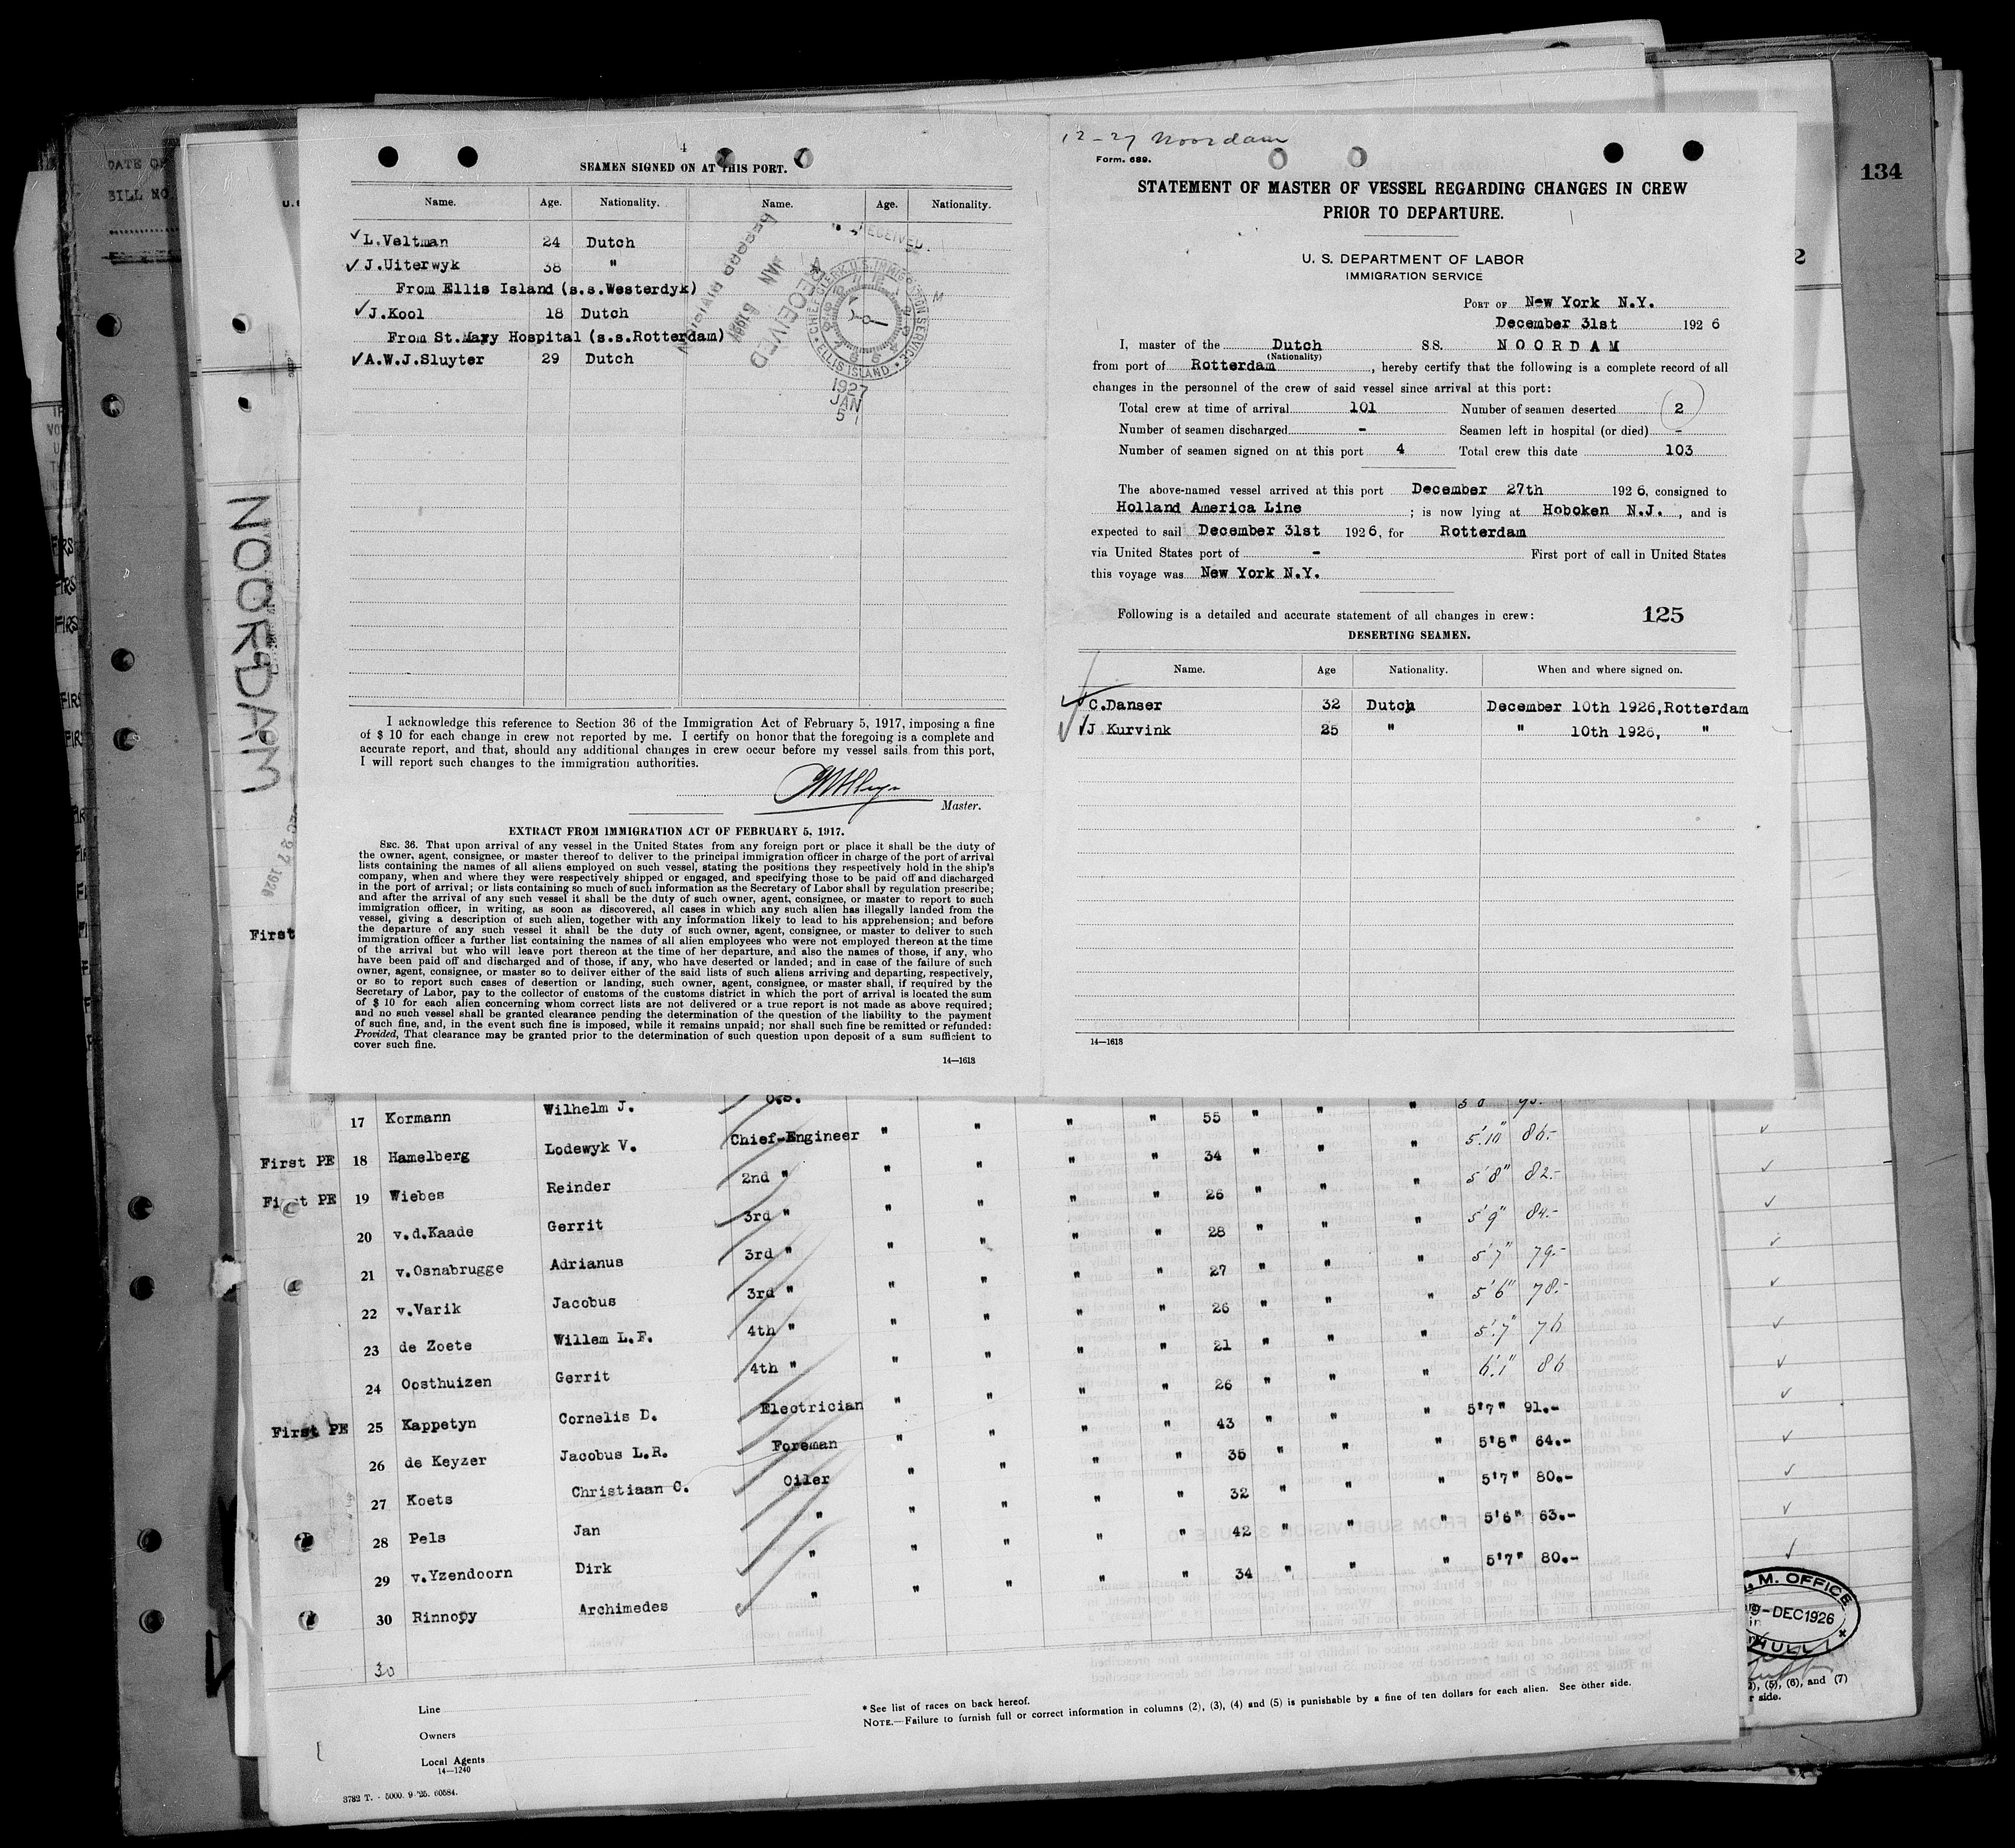 DATE OF
BILL NO.
134
NOORDAM
4
SEAMEN SIGNED ON AT THIS PORT.
Name. Age. Nationality. Name. Age. Nationality.
L.Veltman 24 Dutch
J.Uiterwyk 38 "
From Ellis Island (s.s.Westerdyk)
J.Kool 18 Dutch
From St.Mary Hospital (s.s.Rotterdam)
A.W.J.Sluyter 29 Dutch
RECORD DIVISION
JAN 5 1927
RECEIVED
RECEIVED
CHIEF CLERK U.S. IMMIGRATION SERVICE
ELLIS ISLAND
1927
JAN
5
I acknowledge this reference to Section 36 of the Immigration Act of February 5, 1917, imposing a fine
of $ 10 for each change in crew not reported by me. I certify on honor that the foregoing is a complete and
accurate report, and that, should any additional changes in crew occur before my vessel sails from this port,
I will report such changes to the immigration authorities.
Master.
EXTRACT FROM IMMIGRATION ACT OF FEBRUARY 5, 1917.
SEC. 36. That upon arrival of any vessel in the United States from any foreign port or place it shall be the duty of
the owner, agent, consignee, or master thereof to deliver to the principal immigration officer in charge of the port of arrival
lists containing the names of all aliens employed on such vessel, stating the positions they respectively hold in the ship's
company, when and where they were respectively shipped or engaged, and specifying those to be paid off and discharged
in the port of arrival; or lists containing so much of such information as the Secretary of Labor shall by regulation prescribe;
and after the arrival of any such vessel it shall be the duty of such owner, agent, consignee, or master to report to such
immigration officer, in writing, as soon as discovered, all cases in which any such alien has illegally landed from the
vessel, giving a description of such alien, together with any information likely to lead to his apprehension; and before
the departure of any such vessel it shall be the duty of such owner, agent, consignee, or master to deliver to such
immigration officer a further list containing the names of all alien employees who were not employed thereon at the time
of the arrival but who will leave port thereon at the time of her departure, and also the names of those, if any, who
have been paid off and discharged and of those, if any, who have deserted or landed; and in case of the failure of such
owner, agent, consignee, or master so to deliver either of the said lists of such aliens arriving and departing, respectively,
or so to report such cases of desertion or landing, such owner, agent, consignee, or master shall, if required by the
Secretary of Labor, pay to the collector of customs of the customs district in which the port of arrival is located the sum
of $ 10 for each alien concerning whom correct lists are not delivered or a true report is not made as above required;
and no such vessel shall be granted clearance pending the determination of the question of the liability to the payment
of such fine, and, in the event such fine is imposed, while it remains unpaid; nor shall such fine be remitted or refunded:
Provided, That clearance may be granted prior to the determination of such question upon deposit of a sum sufficient to
cover such fine.
14—1613
12-27 Noordam
Form. 689.
STATEMENT OF MASTER OF VESSEL REGARDING CHANGES IN CREW
PRIOR TO DEPARTURE.
U. S. DEPARTMENT OF LABOR
IMMIGRATION SERVICE
PORT OF New York N.Y.
December 31st 1926
I, master of the Dutch SS. NOORDAM
(Nationality)
from port of Rotterdam, hereby certify that the following is a complete record of all
changes in the personnel of the crew of said vessel since arrival at this port:
Total crew at time of arrival 101 Number of seamen deserted 2
Number of seamen discharged - Seamen left in hospital (or died) -
Number of seamen signed on at this port 4 Total crew this date 103
The above-named vessel arrived at this port December 27th 1926, consigned to
Holland America Line; is now lying at Hoboken N.J., and is
expected to sail December 31st 1926, for Rotterdam
via United States port of - First port of call in United States
this voyage was New York N.Y.
Following is a detailed and accurate statement of all changes in crew: 125
DESERTING SEAMEN.
Name. Age Nationality. When and where signed on.
C.Danser 32 Dutch December 10th 1926, Rotterdam
J Kurvink 25 " " 10th 1926, "
14—1613
DEC 27 1926
First
17 Kormann Wilhelm J. O.S. " " " " 55 " " "
First PE 18 Hamelberg Lodewyk V. Chief-Engineer " " " " 34 " " " 5'.10" 86.-
First PE 19 Wiebes Reinder 2nd " " " " " 26 " " " 5'8" 82.-
20 v.d.Kaade Gerrit 3rd " " " " " 28 " " " 5'9" 84.-
21 v.Osnabrugge Adrianus 3rd " " " " " 27 " " " 5'7" 79.-
22 v.Varik Jacobus 3rd " " " " " 26 " " " 5'6" 78.-
23 de Zoete Willem L.F. 4th " " " " " 21 " " " 5'.7" 76
24 Oosthuizen Gerrit 4th " " " " " 26 " " " 6'.1" 86
First PE 25 Kappetyn Cornelis D. Electrician " " " " 43 " " " 5'7" 91.-
26 de Keyzer Jacobus L.R. Foreman " " " " 35 " " " 5'8" 64.-
27 Koets Christiaan C. Oiler " " " " 32 " " " 5'7" 80.-
28 Pels Jan " " " " " 42 " " " 5'6" 63.-
29 v.Yzendoorn Dirk " " " " " 34 " " " 5'7" 80.-
30 Rinnopy Archimedes " " "
30
Line
Owners
Local Agents
14—1240
* See list of races on back hereof.
NOTE.—Failure to furnish full or correct information in columns (2), (3), (4) and (5) is punishable by a fine of ten dollars for each alien. See other side.
3782 T. - 5000. 9-'25. 60584.
M. OFFICE
9-DEC1926
HULL
(5), (6), and (7)
r side.